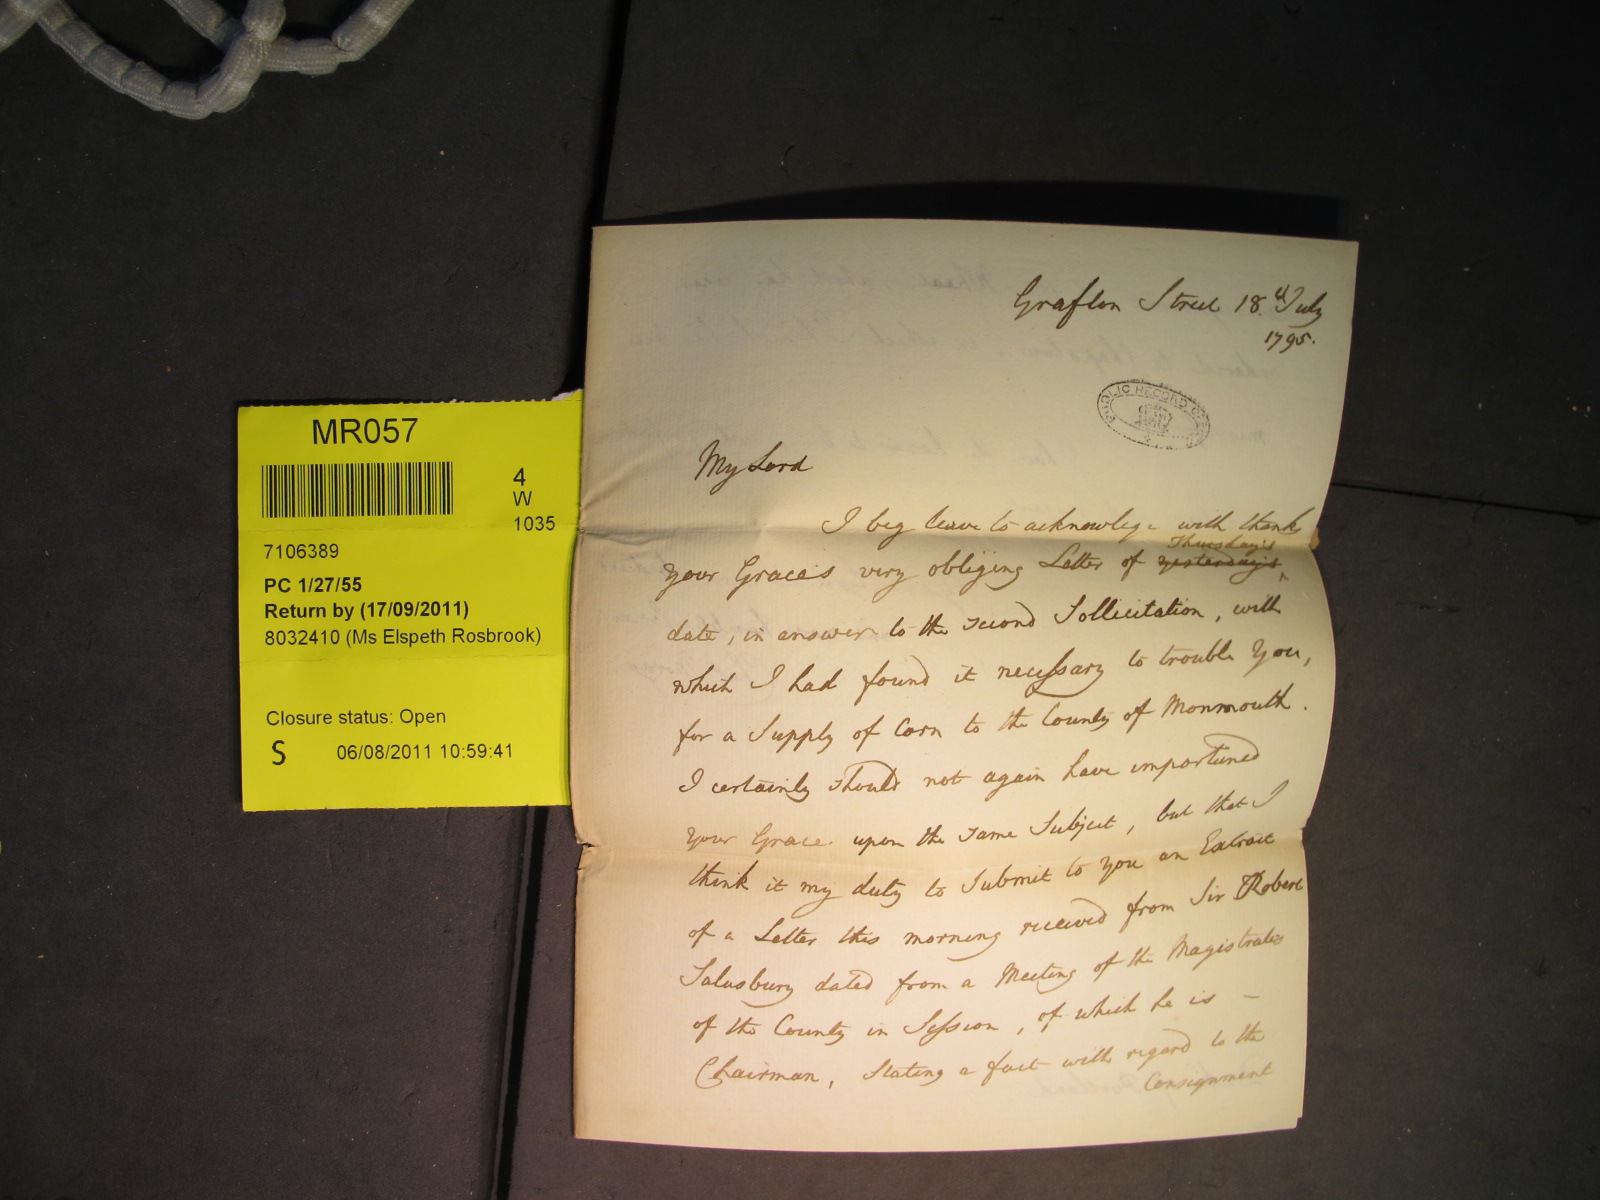 MR057
4
W
1035
7106389
PC 1/27/55
Return by (17/09/2011)
8032410 (Ms Elspeth Rosbrook)
Closure status: Open
S 06/08/2011 10:59:41
Grafton Street 18th July
1795.
PUBLIC RECORD OFFICE
My Lord
I beg leave to acknowlege with thanks
Thursday's
your Grace's very obliging Letter of yesterday's
date, in answer to the second Sollicitation, with
which I had found it necessary to trouble You,
for a Supply of Corn to the County of Monmouth.
I certainly should not again have importuned
your Grace upon the same Subject, but that I
think it my duty to Submit to you an Extract
of a Letter this morning received from Sir Robert
Salusbury dated from a Meeting of the Magistrates
of the County in Session, of which he is –
Chairman, Stating a fact with regard to the
Consignment